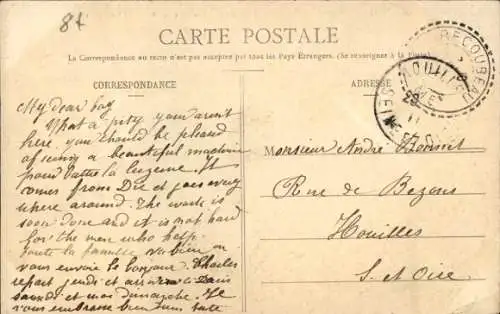 84
CARTE POSTALE
La Correspondance au recto n'est pas acceptée par tous les Pays Étrangers. (Se renseigner à la Poste)
CORRESPONDANCE
ADRESSE
RECOUBEAU
HOUILLES
My dear boy
What a pity you aren't
here, you should be pleased
of seeing a beautiful machine
pour battre la luzerne. It
comes from Die et goes every
where around. The work is
soon done and it is not hard
for the men who help.
Toute la famille va bien on
vous envoie le bonjour. Charles
repart jeudi et arrivera à Paris
samedi et moi dimanche. Je
vous embrasse bien tous
Monsieur André Bonnet
Rue de Bezons
Houilles
S. et Oise